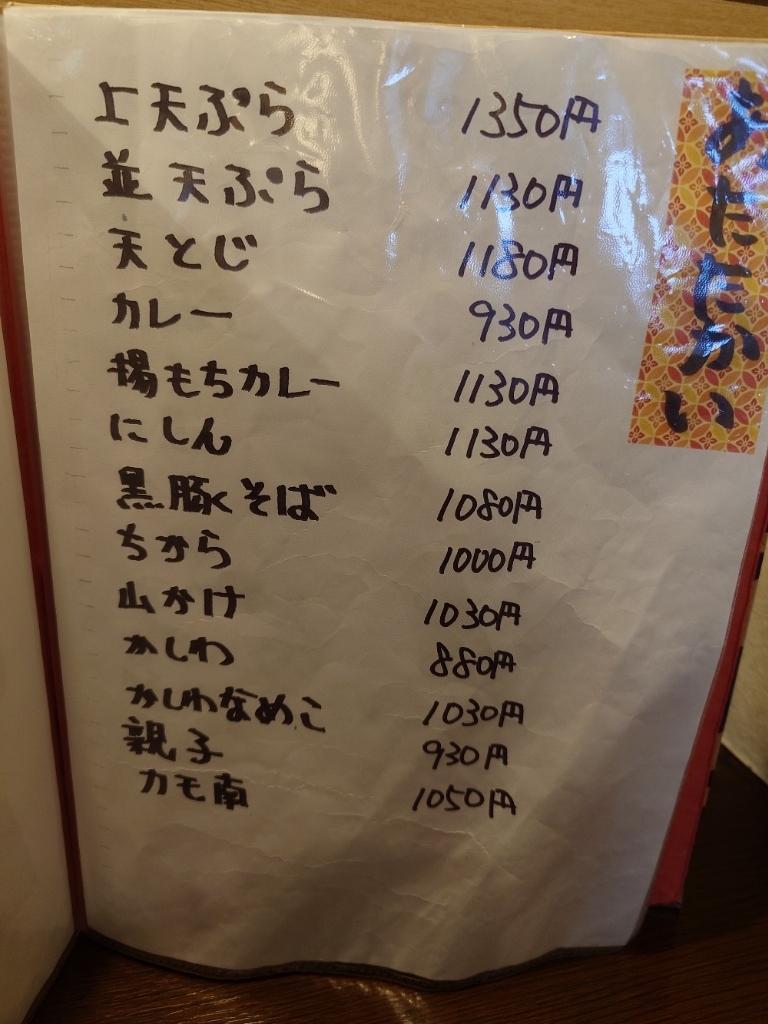 あたたかい
上天ぷら 1350円
並天ぷら 1130円
天とじ 1180円
カレー 930円
揚もちカレー 1130円
にしん 1130円
黒豚そば 1080円
ちから 1000円
山かけ 1030円
かしわ 880円
かしわなめこ 1030円
親子 930円
カモ南 1050円